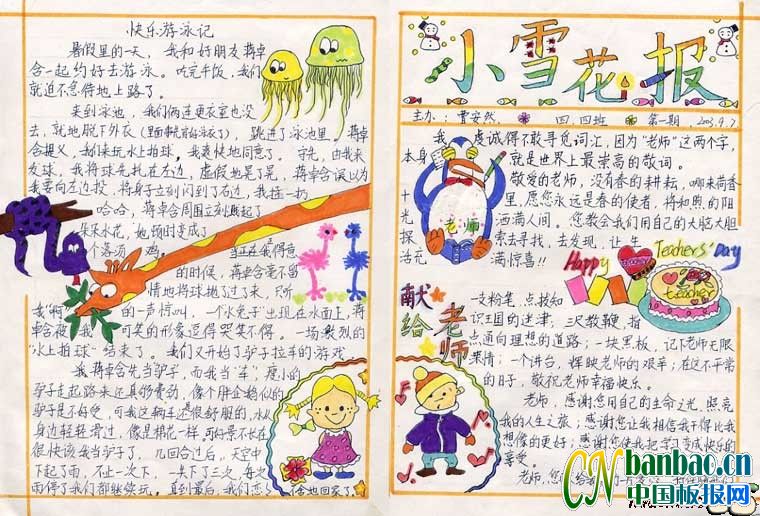 快乐游泳记
暑假里的一天，我和好朋友蒋卓
含一起约好去游泳。吃完午饭，我们
就迫不急待地上路了。
来到泳池，我们俩连更衣室也没
去，就地脱下外衣（里面事先前泳装了），跳进了泳池里。蒋卓
含提义，我们来玩水上拍球，我爽快地同意了。守先，由我来
发球，我将球先扎在左边，虚假地晃了晃，蒋卓含误以为
我要向左边投，将身子立刻闪到了右边，我猛一扔
哈哈，蒋卓含周围立刻溅起了
朵朵水花，她顿时变成了
个落汤鸡。当正在我得意
的时候，蒋卓含毫不留
情地将球抛了过了来，只听
我“啊”的一声惊叫，一个“水兔子”出现在水面上，蒋
卓含被我可笑的形象逗得哭笑不得。一场激烈的
“水上拍球”结束了。我们又开始了驴子拉车的游戏
我蒋卓含先当驴子，而我当“车”，瘦小的
驴子走起路来还真够费劲，像个胖企鹅似的
驴子是不好受，可我这辆车还很舒服的，水从
身边轻轻滑过，像是棉花一样，可好景不长在
很快该我当驴子了，几回合过后，天空中
下起了雨，不止一次下，一共下了三次，每次
雨停了我们都继续玩。直到最后，我们恋
舍地回家了
小雪花报
主办：曹安然
四.四班
第一期
2003.9.7
我虔诚得不敢寻觅词汇，因为“老师”这两个字，
本身就是世界上最崇高的敬词。
敬爱的老师，没有春的耕耘，哪来荷香
十里，愿您永远是春的使者，将和煦的阳
光洒满人间。您教会我们用自己的大脑大胆
探索去寻找，去发现，让生
活充满惊喜!!
老师
Happy Teachers' Day
teacher
献给老师
一支粉笔，点拨知
识王国的迷津；三尺教鞭，指
点通向理想的道路；一块黑板，记下老师无限
深情；一个讲台，辉映老师的艰辛；在这不平常
的日子，敬祝老师幸福快乐。
老师，感谢您用自己的生命之光，照亮
我的人生之旅；感谢您让我相信我干得比我
想像的更好；感谢您使我把学习变成快乐的
享受。
老师，您
CNbanbao.cn
中国板报网